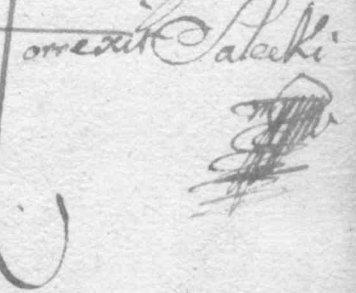 orrexit Salecki